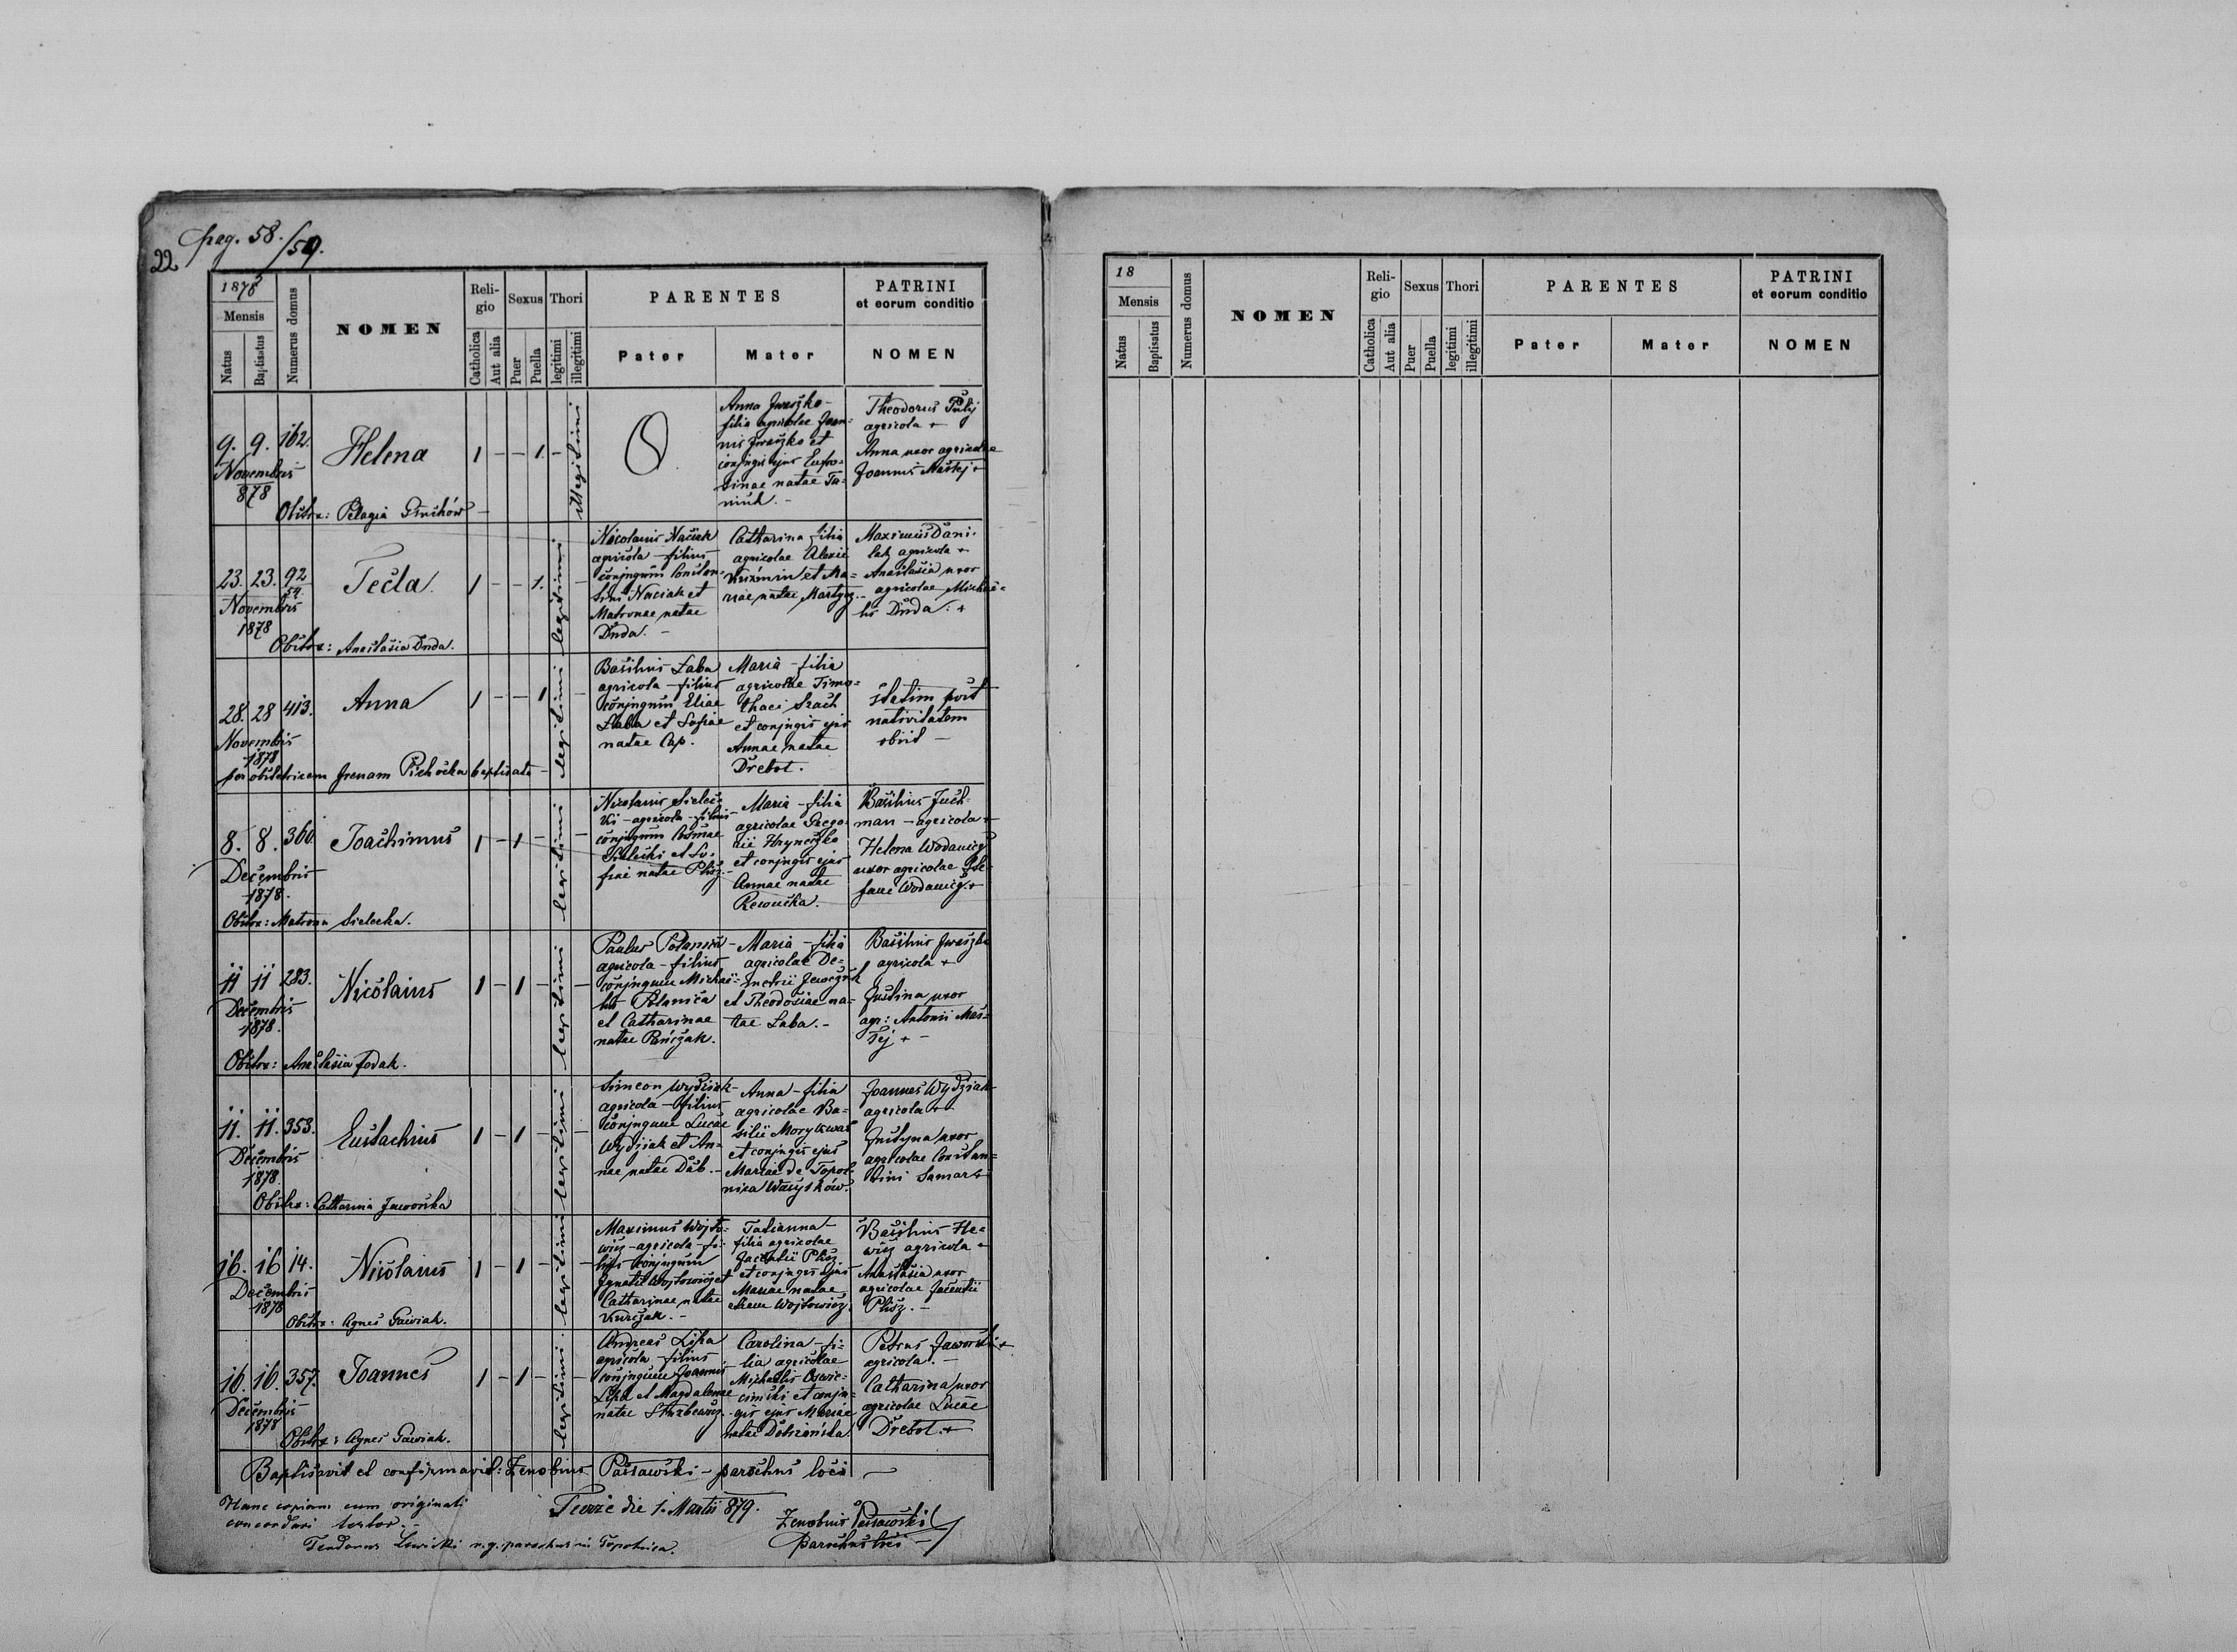 pag. 58./59.
22
1878
Mensis
Natus
Baptisatus
Numerus domus
NOMEN
Religio
Catholica
Aut alia
Sexus
Puer
Puella
Thori
legitimi
illegitimi
PARENTES
Pater
Mater
PATRINI
et eorum conditio
NOMEN
9. 9. 162.
Novembris
878
Helena
1 - - 1. -
illegitimi
Anna Jwaszko -
filia agricolae Joan-
nis Jwaszko et
conjugis ejus Eufro-
sinae natae
Theodorus
agricola +
Anna uxor agricolae
Joannis +
Obstrx: Pelagia
23. 23. 92
54
Novembris
1878
Tecla.
1 - - 1. -
legitimi
Nicolaus Naciak
agricola - filius
conjugum Constan-
tini Naciak et
Matronae natae
Duda. -
Catharina filia
agricolae Alexii
et Ma-
riae natae Martycz. -
Maximus Dani-
agricola +
Anastasia uxor
agricolae Michae-
lis Duda: +
Obstrx: Anastasia Duda.
28. 28 413.
Novembris
1878
Anna
1 - - 1 -
legitimi
Basilius Laba
agricola - filius
conjugum Eliae
Laba et Sofiae
natae Cap.
Maria - filia
agricolae Timo-
thaei Szach
et conjugis ejus
Annae natae
Drebot.
statim post
nativitatem
obiit -
per obstetricem Irenam baptisata -
8. 8. 360.
Decembris
1878.
Joachimus
1 - 1 - -
legitimi
Nicolaus Sielec-
ki - agricola - filius
conjugum Cosmae
Sielecki et So-
fiae natae Plisz. -
Maria - filia
agricolae Grego-
rii Hrynczko
et conjugis ejus
Annae natae
Basilius Juch-
man - agricola +
Helena Wodawicz
uxor agricolae Ste-
fani Wodawicz. +
Obstrx: Matrona Sielecka.
11 11 283.
Decembris
1878.
Nicolaus
1 - 1 - -
legitimi
Paulus Polanica -
agricola - filius
conjugum Michae-
lis Polanica
et Catharinae
natae Panczak.
Maria - filia
agricolae De-
metrii
et Theodosiae na-
tae Laba. -
Basilius Jwaszko
agricola +
Justina uxor
agr: Antonii Mas-
+ -
Obstrx: Anastasia Fedak.
11. 11. 353.
Decembris
1878.
Eustachius
1 - 1 - -
legitimi
Simeon Wydziak -
agricola - filius
conjugum Lucae
Wydziak et An-
nae natae Dub. -
Anna - filia
agricolae Ba-
silii Morykwas
et conjugis ejus
Mariae de Topol-
nica
Joannes Wydziak
agricola +
Justyna uxor
agricolae Constan-
tini Samar +
Obstrx: Catharina Jaworska
16. 16 14.
Decembris
1878
Nicolaus
1 - 1 - -
legitimi
Maximus Wojto-
wicz - agricola - fi-
lius conjugum
Ignatii Wojtowicz et
Catharinae natae
Kurczak. -
Tatianna -
filia agricolae
Jacentii Plisz
et conjugis ejus
Mariae natae
Wojtowicz.
Basilius He-
wicz agricola +
Anastasia uxor
agricolae Jacentii
Plisz. -
Obstrx: Agnes Gawiak.
16. 16. 357.
Decembris
1878
Joannes
1 - 1 - -
legitimi
Andreas Lipa
agricola - filius
conjugum Joannis
Lipa et Magdalenae
natae
Carolina - fi-
lia agricolae
Michaelis
et conju-
gis ejus Mariae
natae
Petrus Jaworski +
agricola. -
Catharina uxor
agricolae Lucae
Drebot. +
Obstrx: Agnes Gawiak.
Baptisavit et confirmavit: Zenobius Passawski - parochus loci -
Hanc copiam cum originali
concordari testor. -
Teodorus r. g. parochus in Topolnica.
die 1. Martii 879.
Zenobius Passawski
parochus loci -
18
Mensis
Natus
Baptisatus
Numerus domus
NOMEN
Religio
Catholica
Aut alia
Sexus
Puer
Puella
Thori
legitimi
illegitimi
PARENTES
Pater
Mater
PATRINI
et eorum conditio
NOMEN